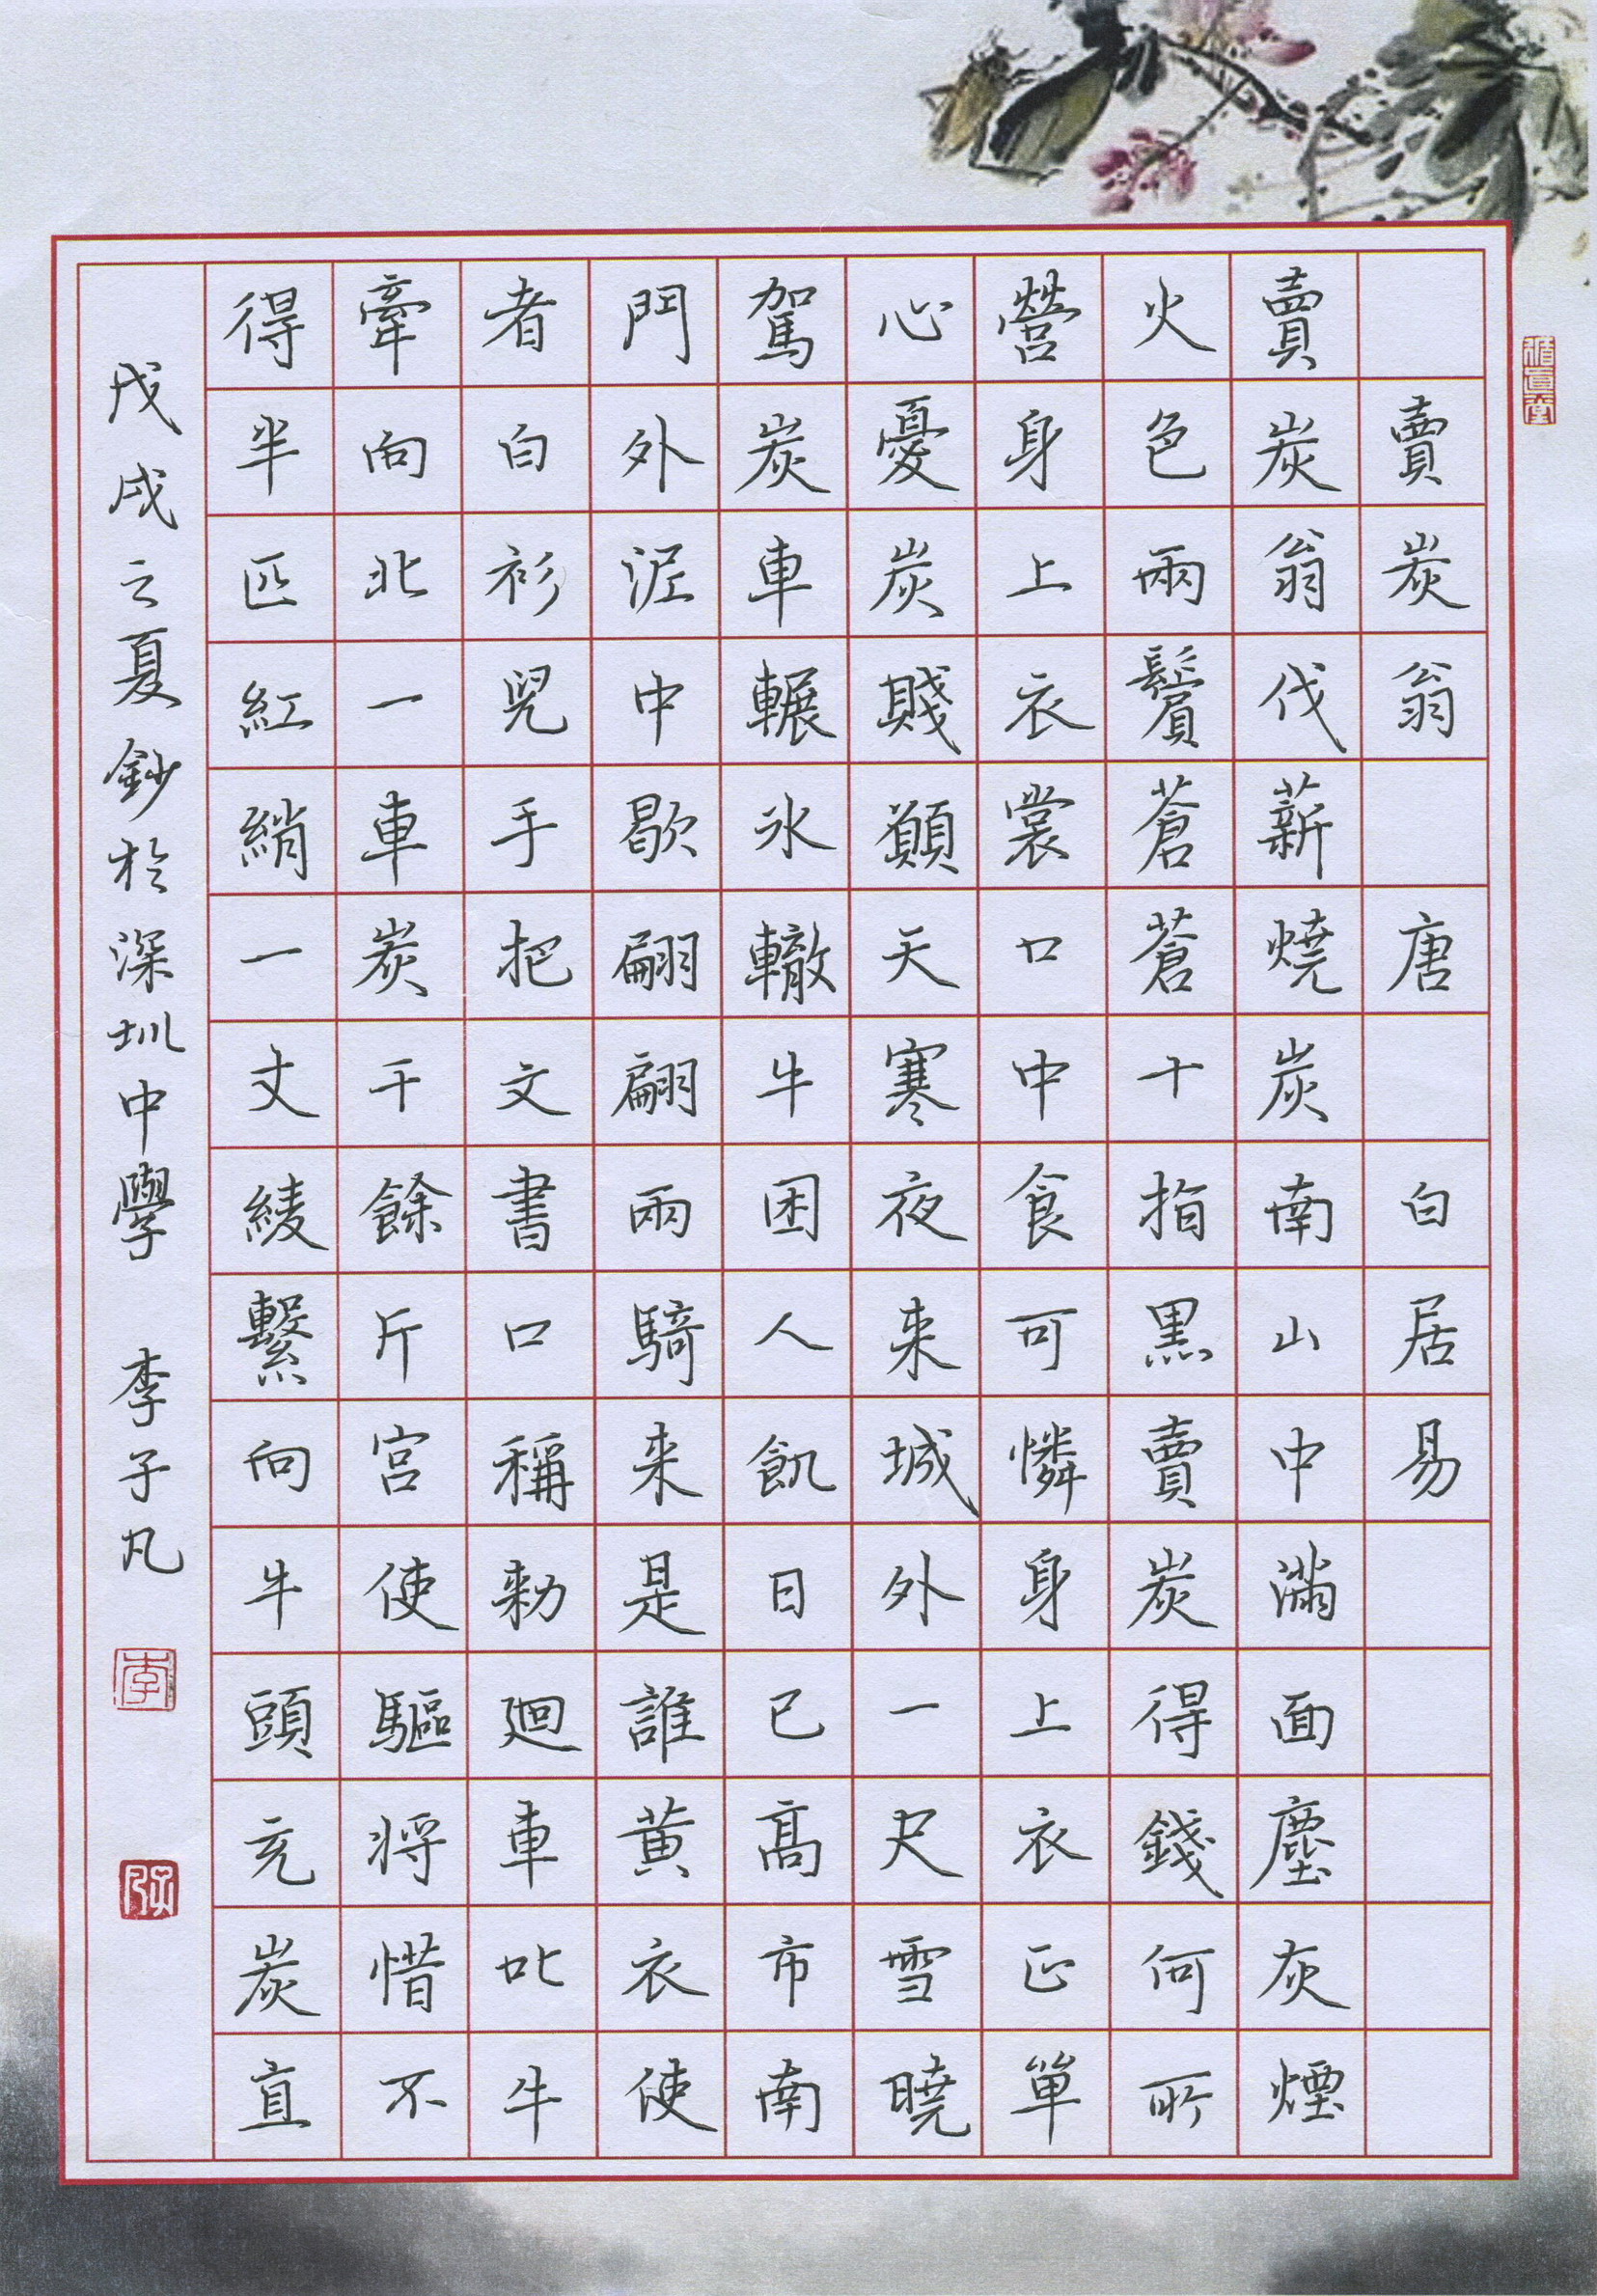 賣炭翁 唐 白居易
賣炭翁伐薪燒炭南山中滿面塵灰煙
火色兩鬢蒼蒼十指黑賣炭得錢何所
營身上衣裳口中食可憐身上衣正單
心憂炭賤願天寒夜來城外一尺雪曉
駕炭車輾冰轍牛困人飢日已高市南
門外泥中歇翩翩兩騎来是誰黃衣使
者白衫兒手把文書口稱勑迴車叱牛
牽向北一車炭千餘斤宮使驅将惜不
得半匹紅綃一丈綾繫向牛頭充炭直
戊戌之夏鈔於深圳中學 李子凡
李
循直堂